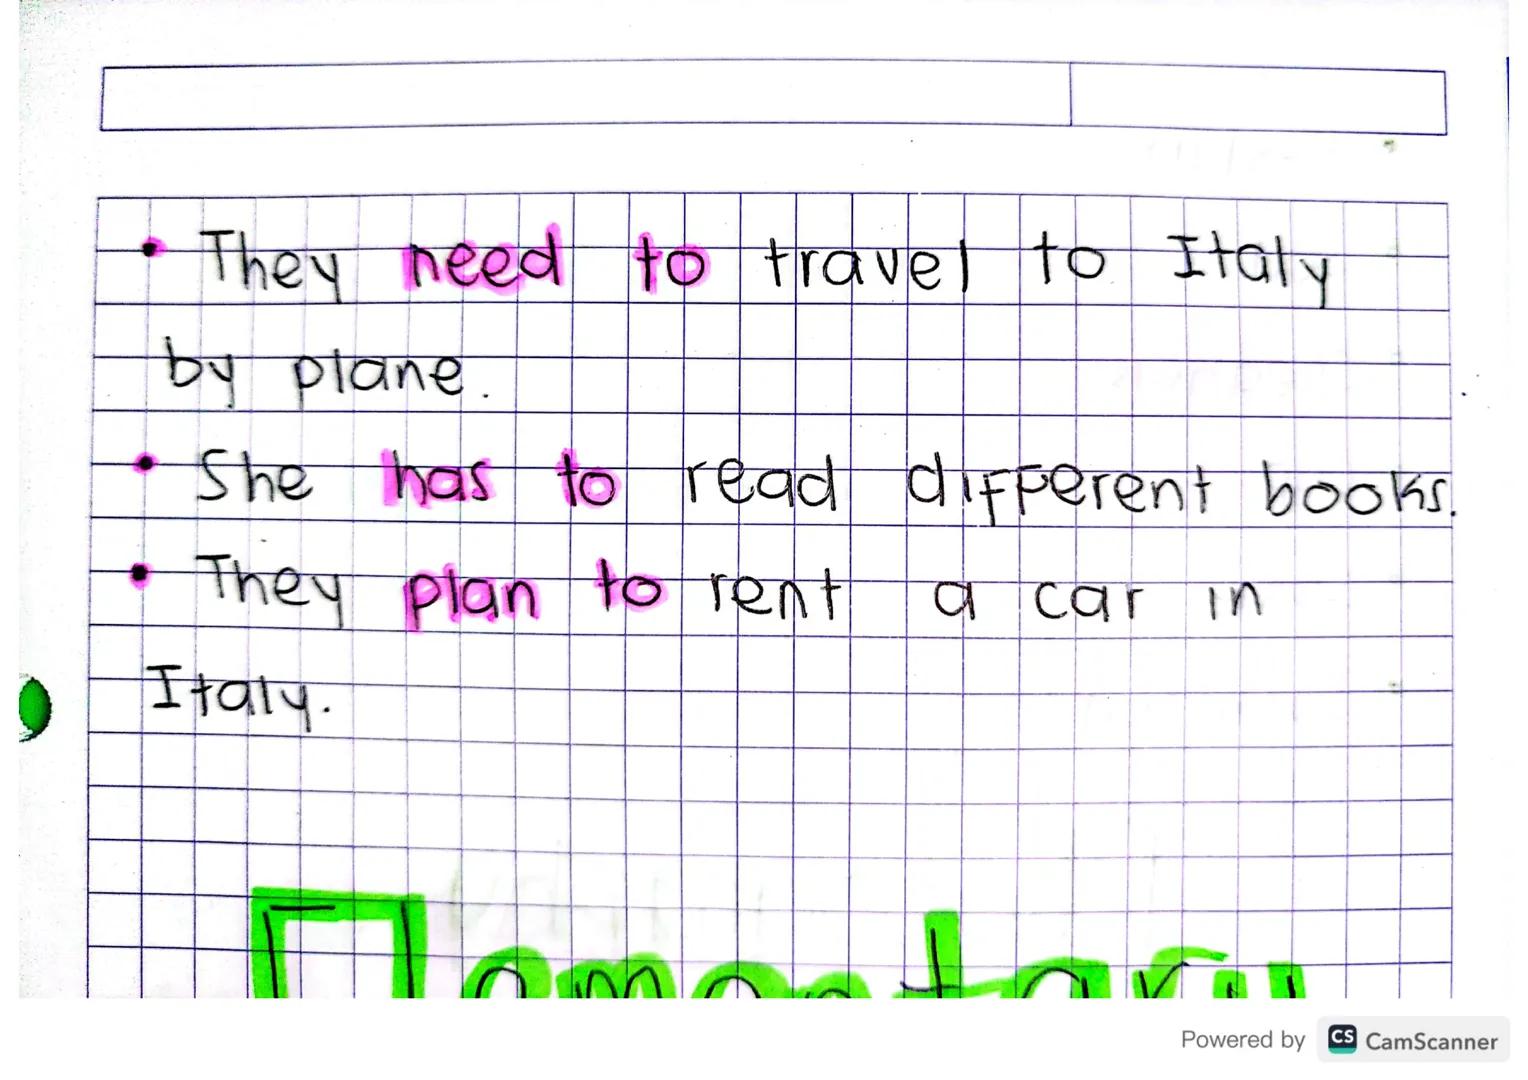 • They need to travel to Italy
by plane.
• She has to read different books.
• They plan to rent a car in
Italy.
Powered by CS CamScanner